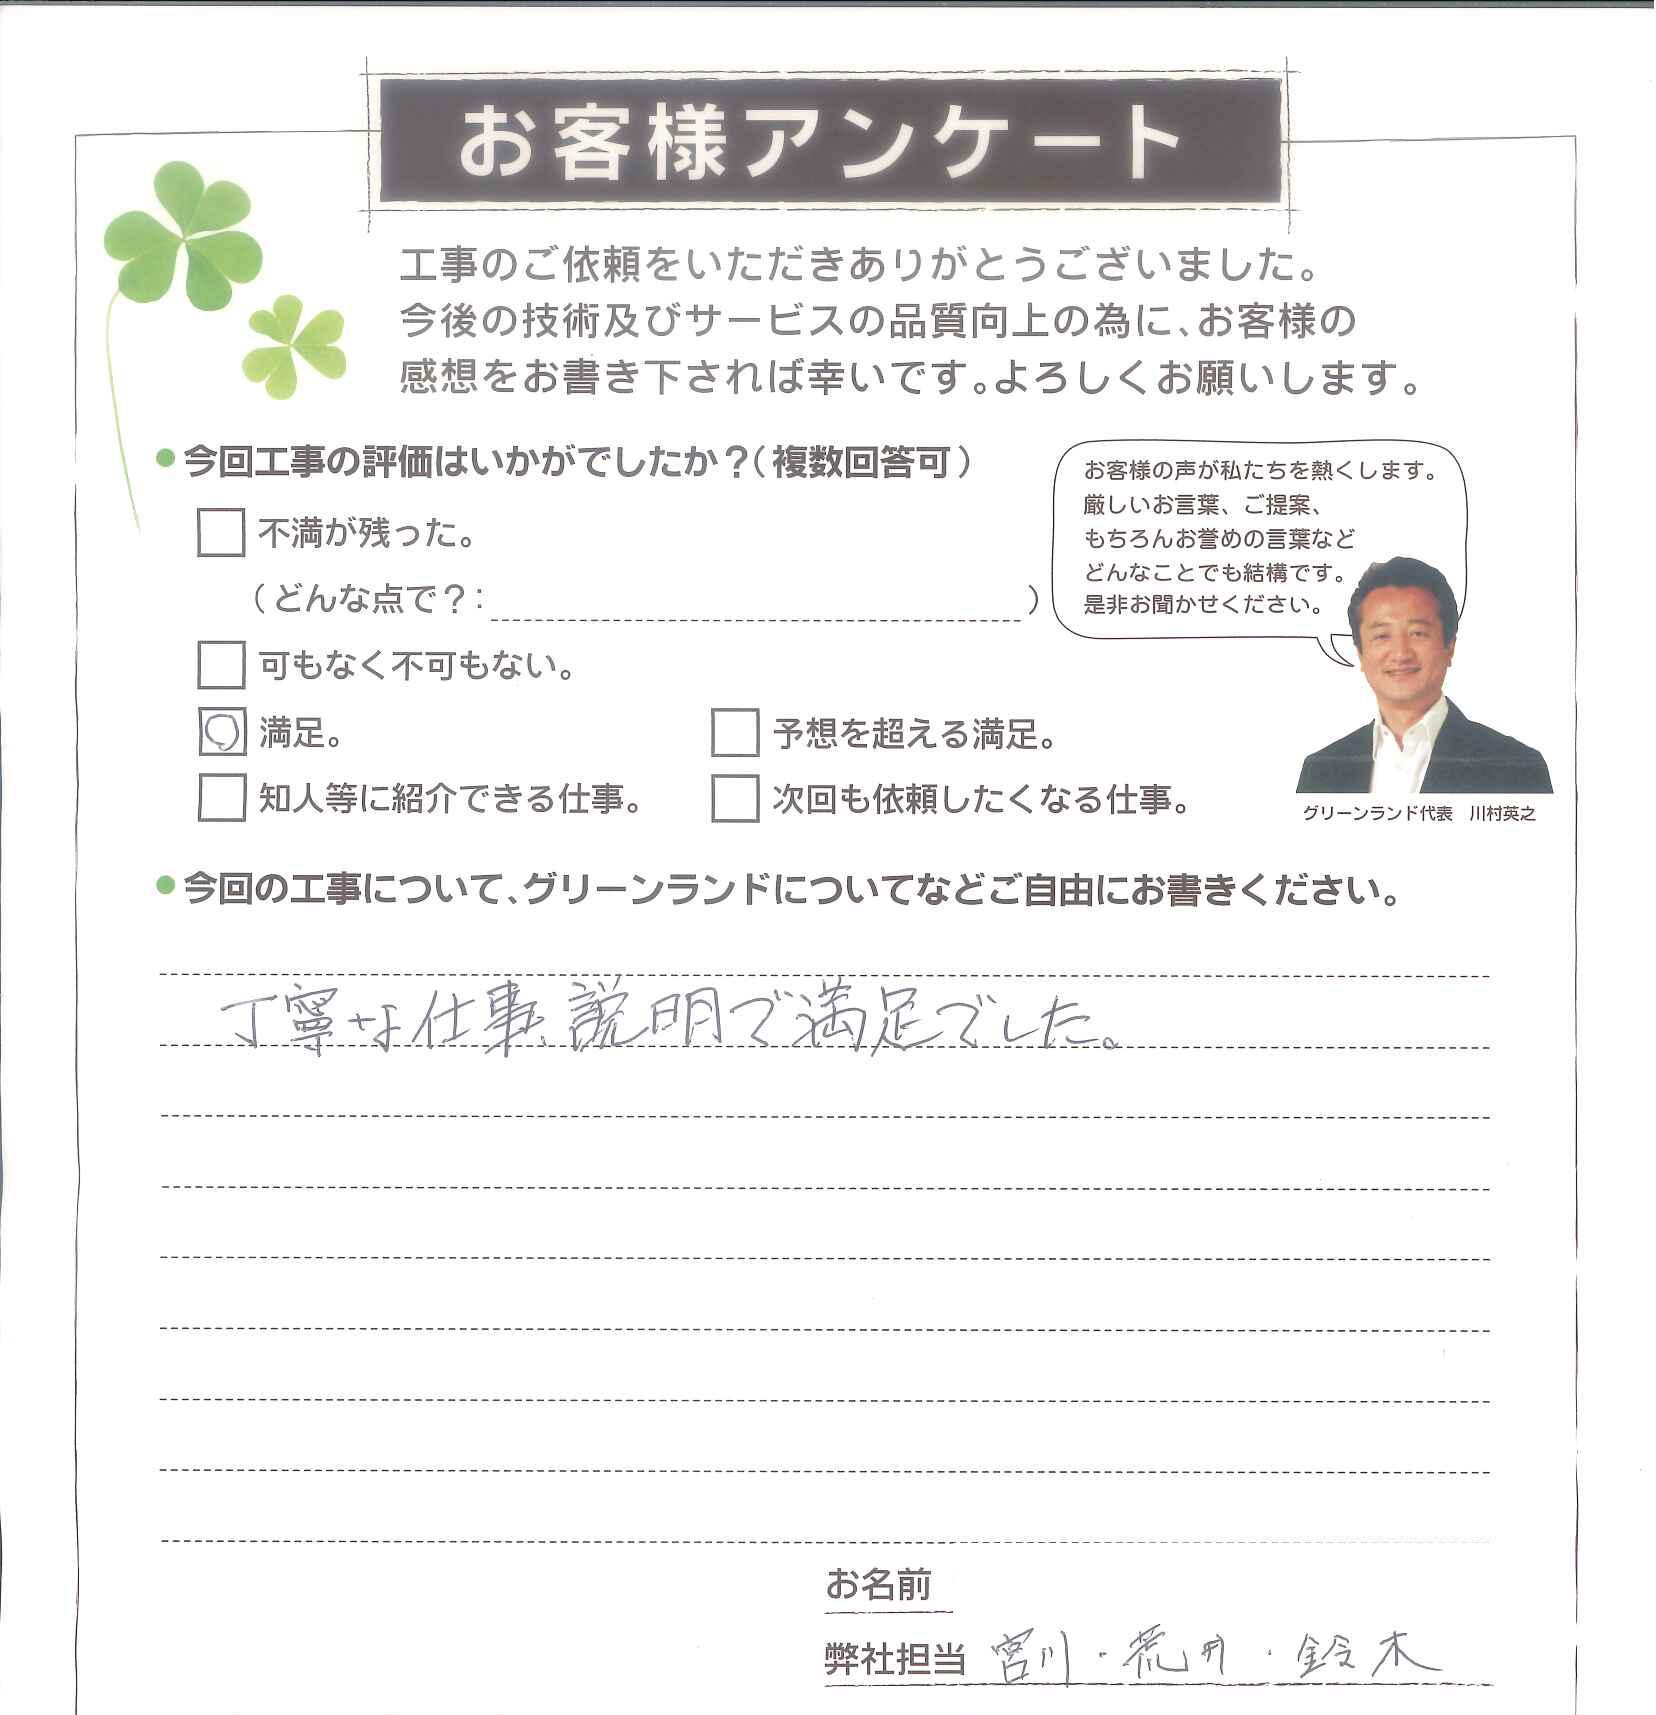 お客様アンケート
工事のご依頼をいただきありがとうございました。
今後の技術及びサービスの品質向上の為に、お客様の
感想をお書き下されば幸いです。よろしくお願いします。
今回工事の評価はいかがでしたか？（複数回答可）
不満が残った。
（どんな点で？：　）
可もなく不可もない。
満足。
予想を超える満足。
知人等に紹介できる仕事。
次回も依頼したくなる仕事。
お客様の声が私たちを熱くします。
厳しいお言葉、ご提案、
もちろんお誉めの言葉など
どんなことでも結構です。
是非お聞かせください。
グリーンランド代表　川村英之
今回の工事について、グリーンランドについてなどご自由にお書きください。
丁寧な仕事、説明で満足でした。
お名前
弊社担当 宮川・荒井・鈴木